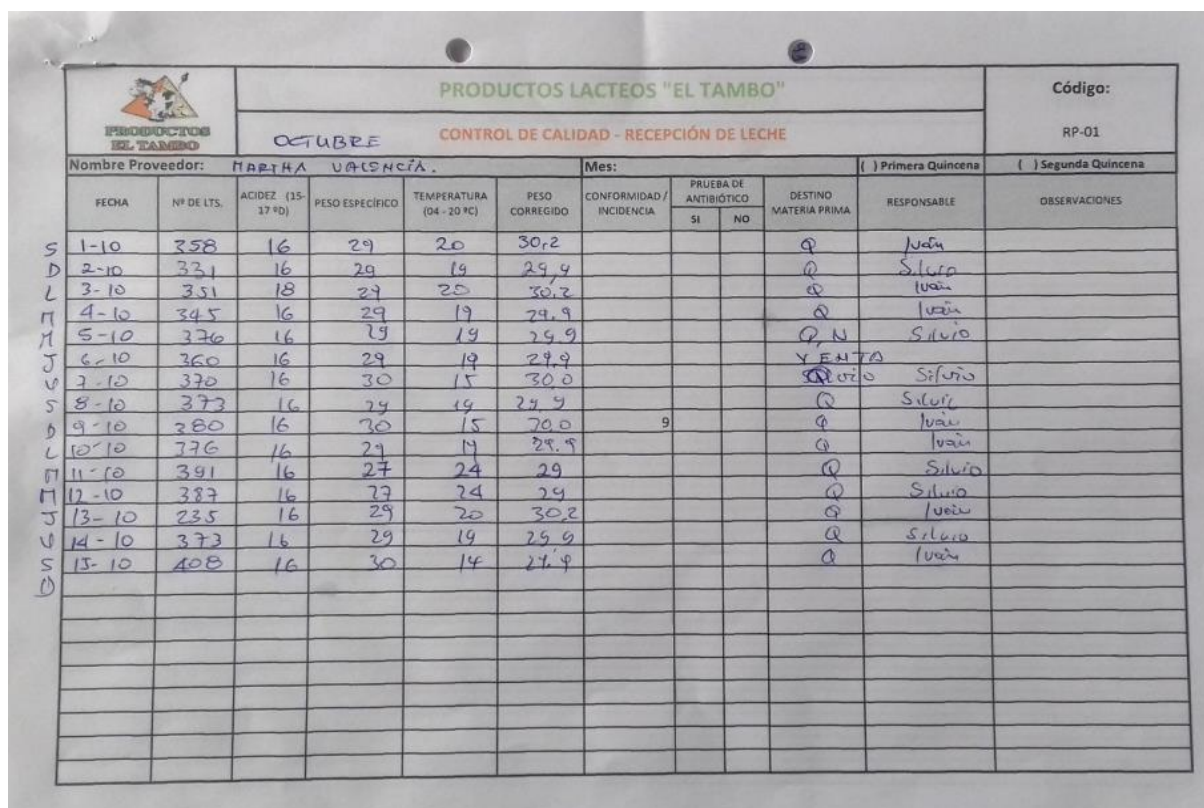 PRODUCTOS LACTEOS "EL TAMBO"
Código:
PRODUCTOS
EL TAMBO
OCTUBRE CONTROL DE CALIDAD - RECEPCIÓN DE LECHE
RP-01
Nombre Proveedor: MARTHA VALENCIA. Mes: ( ) Primera Quincena ( ) Segunda Quincena
FECHA Nº DE LTS. ACIDEZ (15-17 ºD) PESO ESPECÍFICO TEMPERATURA (04 - 20 ºC) PESO CORREGIDO CONFORMIDAD / INCIDENCIA PRUEBA DE ANTIBIÓTICO SI NO DESTINO MATERIA PRIMA RESPONSABLE OBSERVACIONES
S 1-10 358 16 29 20 30,2 Q Iván
D 2-10 331 16 29 19 29,9 Q Silvio
L 3-10 351 18 29 20 30,2 Q Iván
M 4-10 345 16 29 19 29.9 Q Iván
M 5-10 376 16 29 19 29.9 Q, N Silvio
J 6-10 360 16 29 19 29.9 VENTA
V 7-10 370 16 30 15 30,0 Silvio
S 8-10 373 16 29 19 29,9 Q Silvio
D 9-10 380 16 30 15 30,0 9 Q Iván
L 10-10 376 16 29 29.9 Q Iván
M 11-10 391 16 27 24 29 Q Silvio
M 12-10 387 16 27 24 29 Q Silvio
J 13-10 235 16 29 20 30,2 Q Iván
V 14-10 373 16 29 19 29 9 Q Silvio
S 15-10 408 16 30 14 Q Iván
D